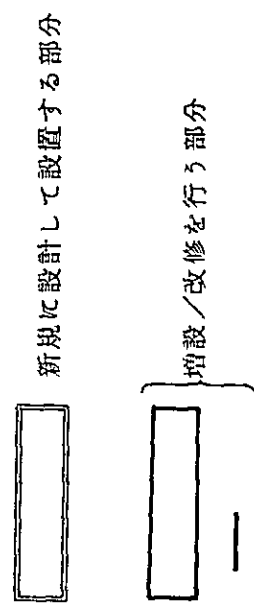 新規に設計して設置する部分
増設／改修を行う部分